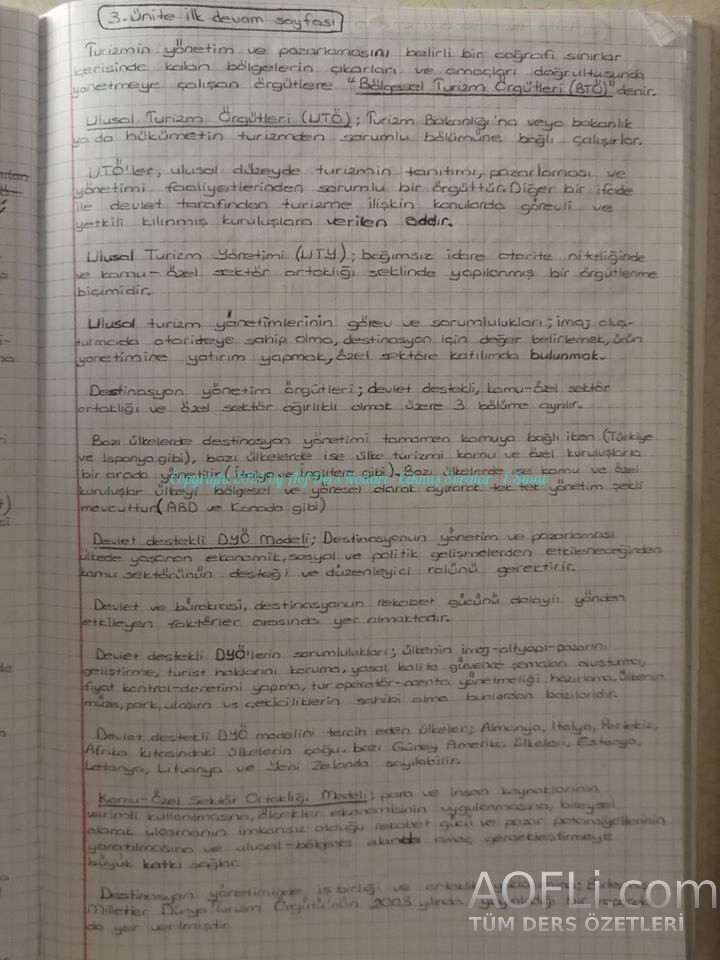 3. ünite ilk devam sayfası
Turizmin yönetim ve pazarlamasını belirli bir coğrafi sınırlar
içerisinde kalan bölgelerin çıkarları ve amaçları doğrultusunda
yönetmeye çalışan örgütlere "Bölgesel Turizm Örgütleri (BTÖ)" denir.
Ulusal Turizm Örgütleri (UTÖ); Turizm Bakanlığı'na veya bakanlık
ya da hükümetin turizmden sorumlu bölümüne bağlı çalışırlar.
UTÖ'ler, ulusal düzeyde turizmin tanıtımı, pazarlaması ve
yönetimi faaliyetlerinden sorumlu bir örgüttür. Diğer bir ifade
ile devlet tarafından turizme ilişkin konularda görevli ve
yetkili kılınmış kuruluşlara verilen addır.
Ulusal Turizm Yönetimi (UTY); bağımsız idare otorite niteliğinde
ve kamu-özel sektör ortaklığı şeklinde yapılanmış bir örgütlenme
biçimidir.
Ulusal turizm yönetimlerinin görev ve sorumlulukları; imaj oluş-
turmada otoriteye sahip olma, destinasyon için değer belirlemek, ürün
yönetimine yatırım yapmak, özel sektöre katılımda bulunmak.
Destinasyon yönetim örgütleri; devlet destekli, kamu-özel sektör
ortaklığı ve özel sektör ağırlıklı olmak üzere 3 bölüme ayrılır.
Bazı ülkelerde destinasyon yönetimi tamamen kamuya bağlı iken (Türkiye
ve İspanya gibi), bazı ülkelerde ise ülke turizmi kamu ve özel kuruluşlarla
bir arada yönetilir (İtalya ve İngiltere gibi). Bazı ülkelerde ise kamu ve özel
Copyright by Aöf Ders Notları Çıkmış Sorular
kuruluşlar ülkeyi bölgesel ve yöresel olarak ayırarak tek tek yönetim şekli
mevcuttur (ABD ve Kanada gibi)
Devlet destekli DYÖ Modeli; Destinasyonun yönetim ve pazarlaması
ülkede yaşanan ekonomik, sosyal ve politik gelişmelerden etkileneceğinden
kamu sektörünün desteği ve düzenleyici rolünü gerektirir.
Devlet ve bürokrasi, destinasyonun rekabet gücünü dolaylı yönden
etkileyen faktörler arasında yer almaktadır.
Devlet destekli DYÖ'lerin sorumlulukları; ülkenin imaj-altyapı-pazarını
geliştirme, turist haklarını koruma, yasal kalite güvence şemaları oluşturma,
fiyat kontrol-denetimi yapma, tur operatör-acenta yönetmeliği hazırlama, ülkenin
müze, park, ulaşım vs çekiciliklerin sahibi olma bunlardan bazılarıdır.
Devlet destekli DYÖ modelini tercih eden ülkeler; Almanya, İtalya, Portekiz,
Afrika kıtasındaki ülkelerin çoğu, bazı Güney Amerika ülkeleri, Estonya,
Letonya, Lituanya ve Yeni Zelanda sayılabilir.
Kamu-Özel Sektör Ortaklığı Modeli; para ve insan kaynaklarının
verimli kullanılmasına, ölçekler ekonomisinin uygulanmasına, bireysel
olarak ulaşmanın imkansız olduğu rekabet gücü ve pazar potansiyellerinin
yaratılmasına ve ulusal-bölgesel alanda amaç gerçekleştirmeye
büyük katkı sağlar.
Destinasyon yönetiminde işbirliği ve ortaklık
Milletler Dünya Turizm Örgütü'nün 2003 yılında yayınladığı bir
da yer verilmiştir.
AOFLi.com
TÜM DERS ÖZETLERİ